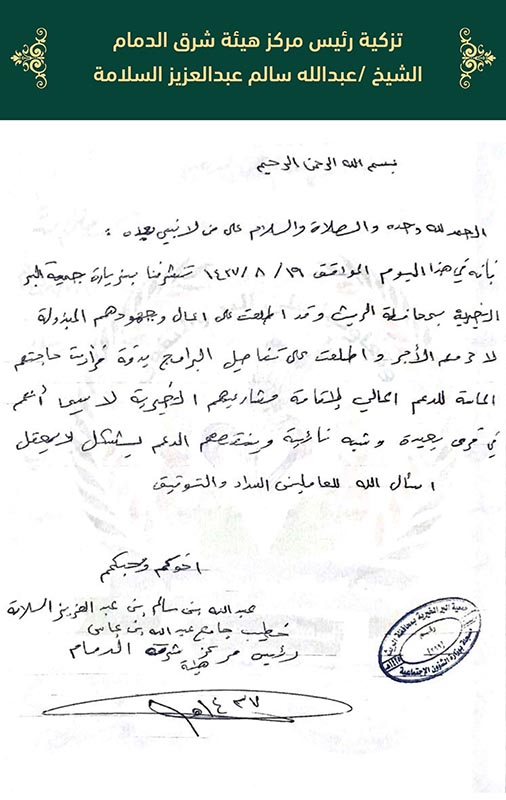 تزكية رئيس مركز هيئة شرق الدمام
الشيخ /عبدالله سالم عبدالعزيز السلامة
بسم الله الرحمن الرحيم
الحمد لله وحده والصلاة والسلام على من لا نبي بعده :
فإنه في هذا اليوم الموافق ١٩ / ٨ / ١٤٣٧ تشرفنا بزيارة جمعية البر
الخيرية بمحافظة الريث وقد اطلعت على أعمال وجهودهم المبذولة
لا حرمهم الأجر و اطلعت على تفاصيل البرامج بدقة فرأيت حاجتهم
الماسة للدعم المالي لإقامة مشاريعهم الخيرية لا سيما أنهم
في قرى بعيدة وشبه نائية وينقصهم الدعم بشكل لا يعقل
أسأل الله للعاملين السداد والتوفيق
أخوكم ومحبكم
عبدالله بن سالم بن عبد العزيز السلامة
خطيب جامع عبدالله بن عباس
رئيس مركز هيئة شرق الدمام
١٤٣٧هـ
جمعية البر الخيرية بمحافظة الريث
رقم
بوزارة الشؤون الإجتماعية